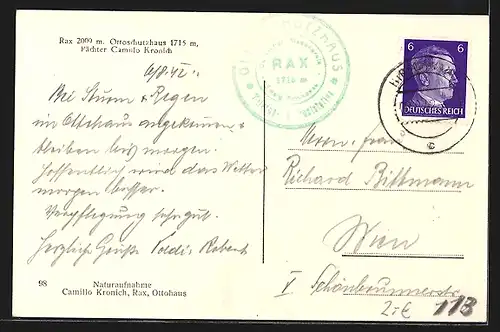 Rax 2009 m. Ottoschutzhaus 1715 m,
Pächter Camillo Kronich
6/8.42.
Bei Sturm & Regen
im Ottohaus angekommen,
bleiben bis morgen.
Hoffentlich wird das Wetter
morgen besser.
Verpflegung sehr gut.
Herzliche Grüße Poldi, Robert
98
Naturaufnahme
Camillo Kronich, Rax, Ottohaus
RAX
1716 m
6 6
DEUTSCHES REICH
c
Herrn, Frau
Richard Bittmann
Wien
V Schönbrunnerstr.
113
2.-€